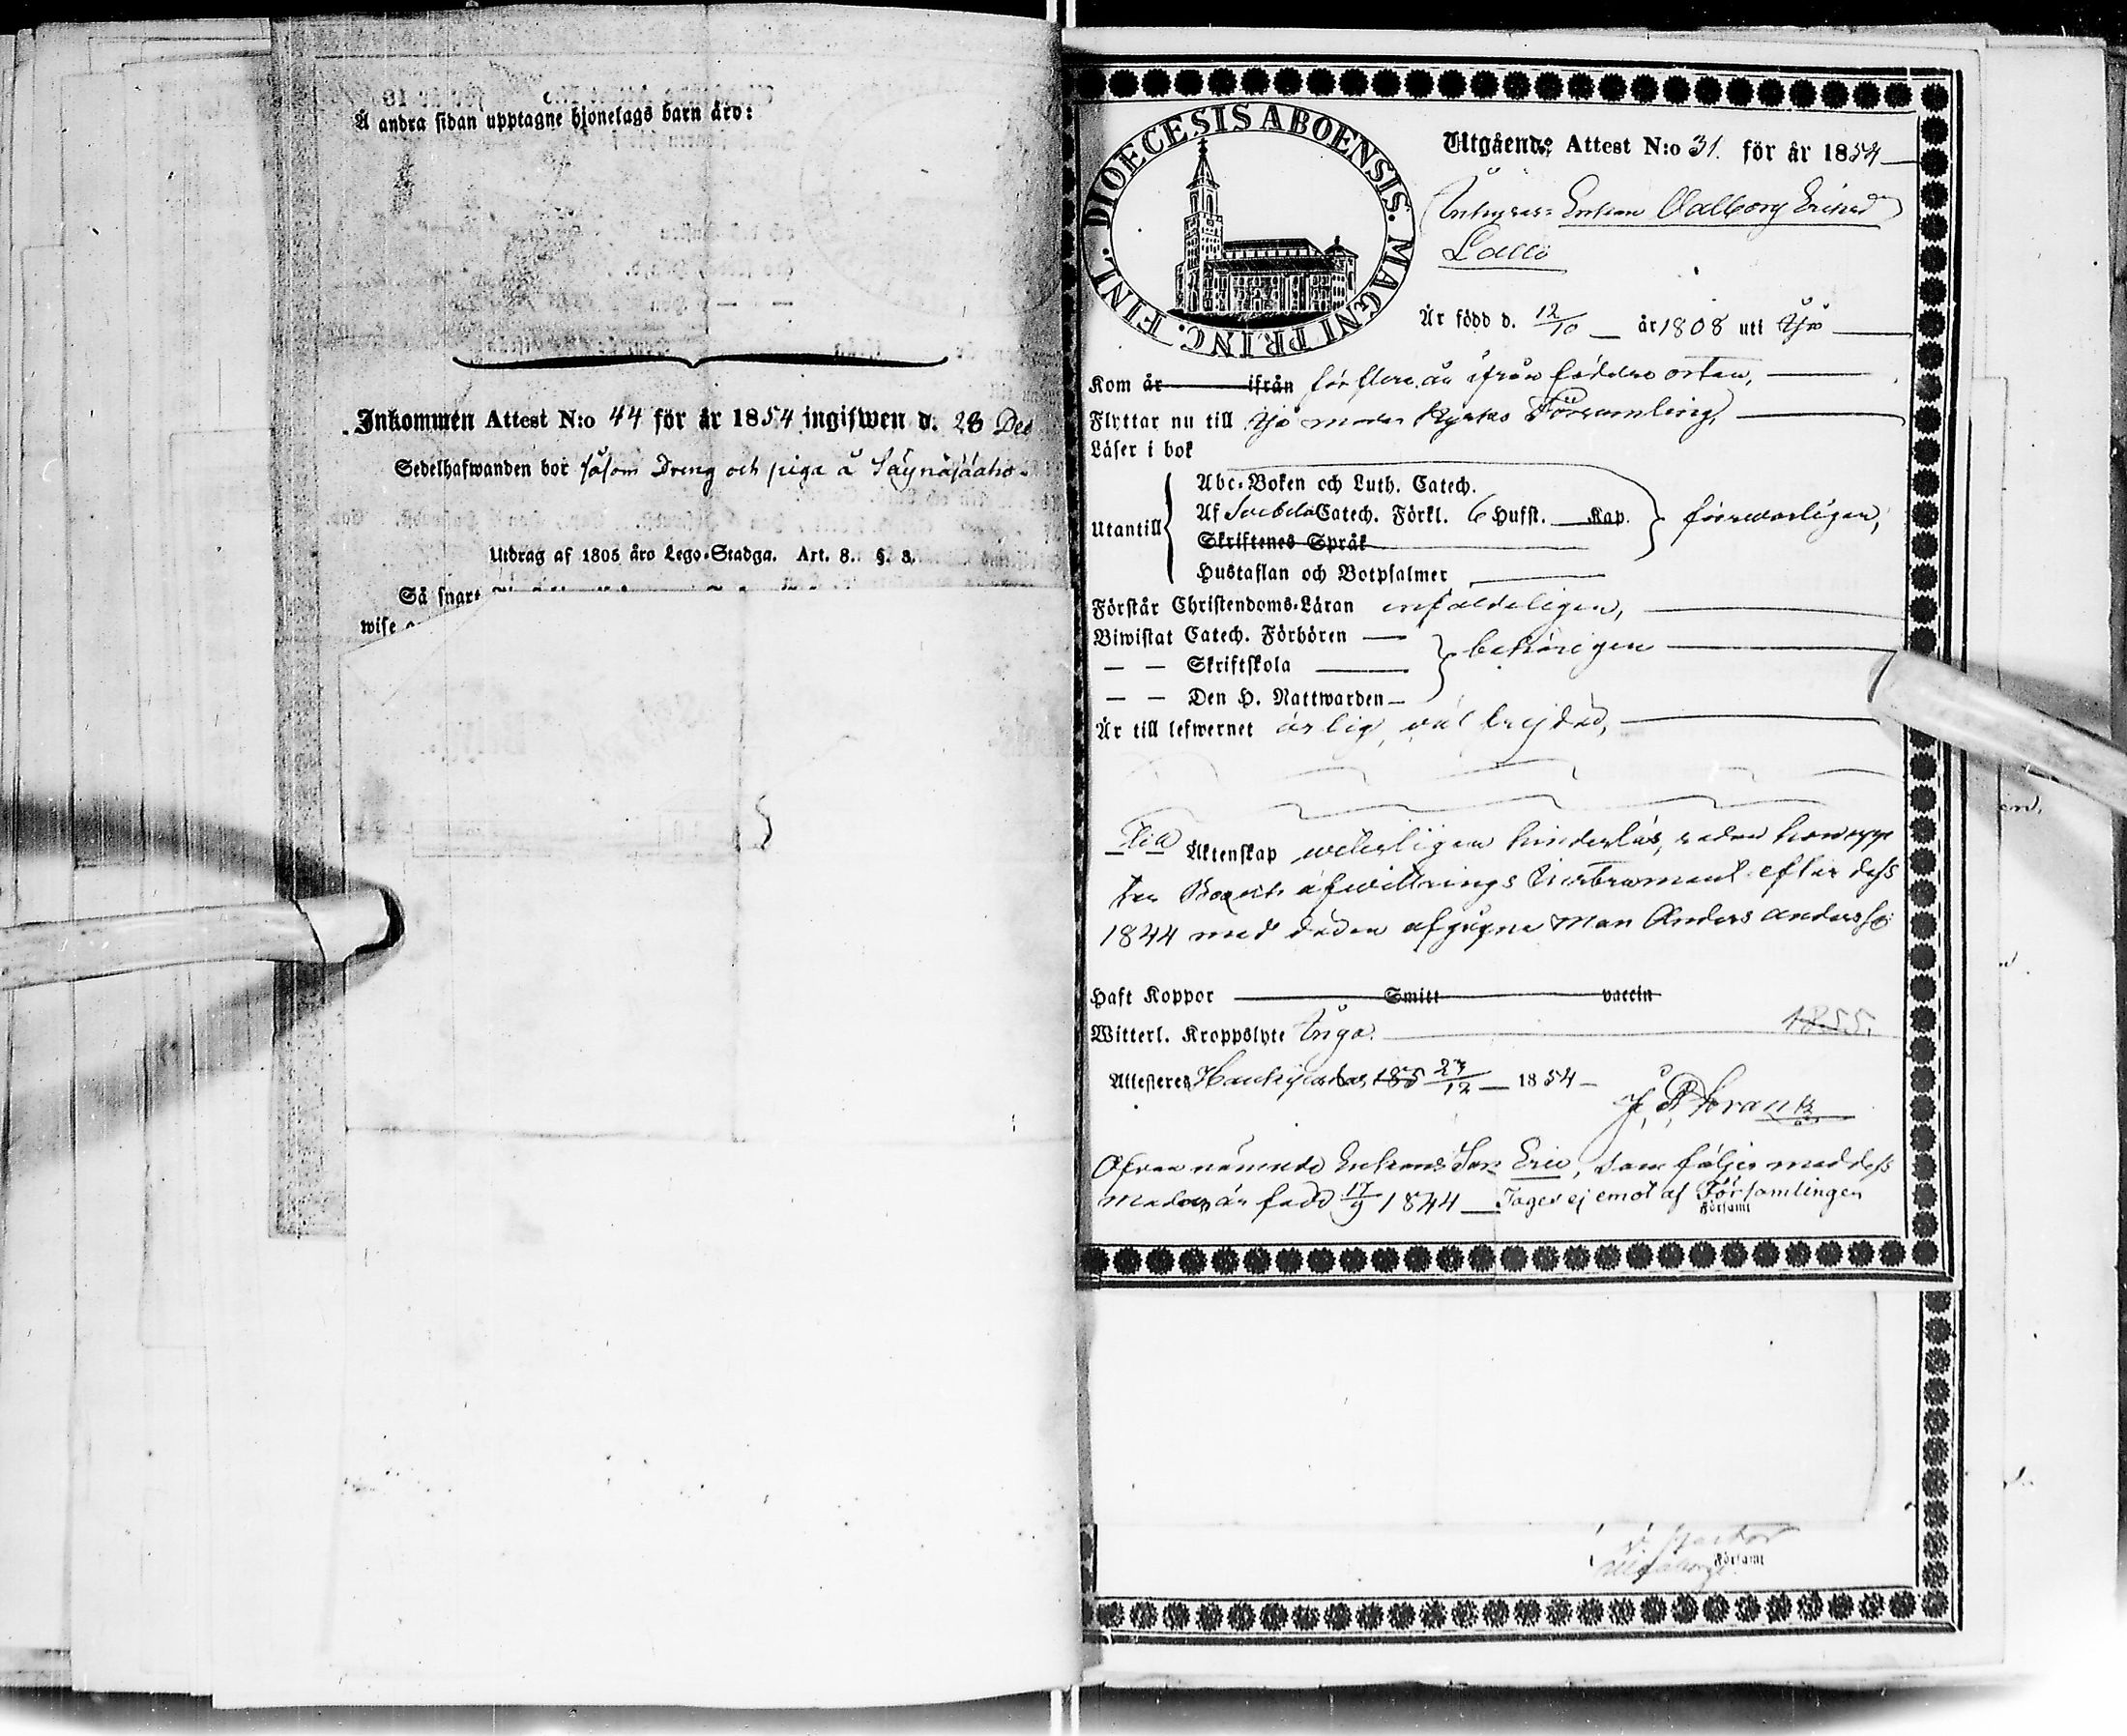 Å andra sidan upptagne hjonelags barn äro:
Inkommen Attest N:o 44 för år 1854 ingifwen d. 28 Dec
Sedelhafwanden bor såsom Dreng och piga å Säynäjäaho
Utdrag af 1805 års Lego-Stadga. Art. 8. §. 8.
Så snart
wise
DIOECESIS ABOENSIS. MAGNI PRINC. FINL.
Utgående Attest N:o 31. för år 1854
Enkan Valborg Ericsd
Lallo
Är född d. 12/10 år 1808 uti Ijo
Kom år ifrån för flere år ifrån födelse orten,
Flyttar nu till Ijo moder Kyrko Församling,
Läser i bok
Utantill
Abc-Boken och Luth. Catech.
Af Svebelii Catech. Förkl. 6 Hufst. Kap. försvarligen,
Skriftenes Språk
Hustaflan och Botpsalmer
Förstår Christendoms-Läran enfaldeligen,
Biwistat Catech. Förhören
— — Skriftskola behörigen
— — Den H. Nattwarden
Är till lefwernet ärlig, väl frejdad,
Till Äktenskap veterligen hinderlös, sedan hon uppe
ter Bo och afwittrings Instrument efter dess
1844 med döden afgångne man Anders Anderss:
Haft Koppor Smitt vaccin
Witterl. Kroppslyte Inga. 1855.
Attesteras Haukipudas 185 23/12 1854
Ofvan nämnde Enkans Son Eric, som följer med dess
moder, är född 17/9 1844 Tages ej emot af Församlingen
Församl
v. Pastor
Församl